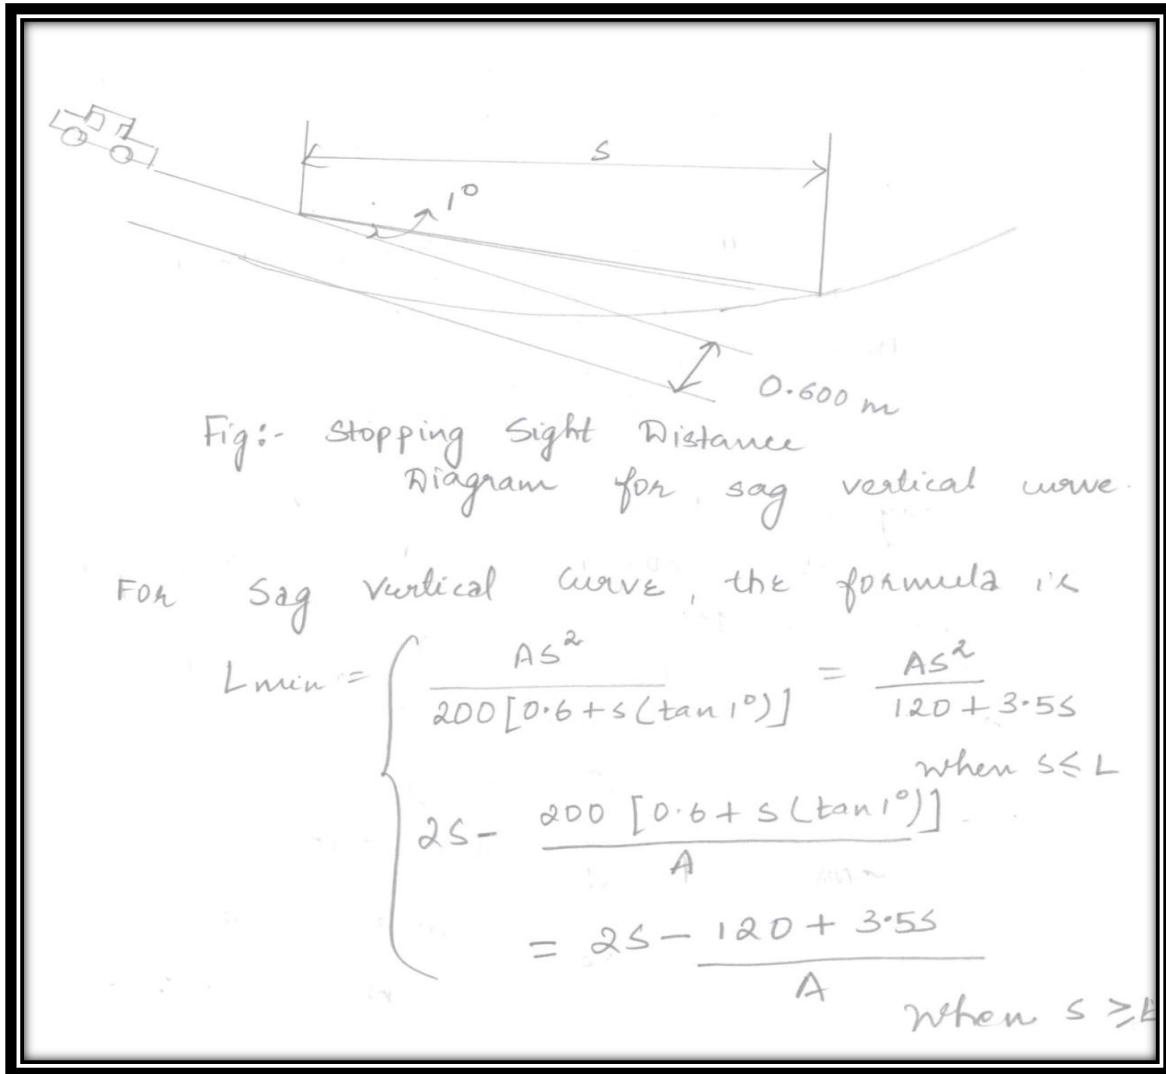 S
1°
0.600 m
Fig:- Stopping Sight Distance
Diagram for sag vertical curve.
For Sag Vertical Curve, the formula is
Lmin = { AS² / 200[0.6+s(tan1°)] = AS² / 120+3.5S
when S≤L
2S- 200 [0.6+s(tan1°)] / A
= 2S- 120+3.5S / A
When S ≥L